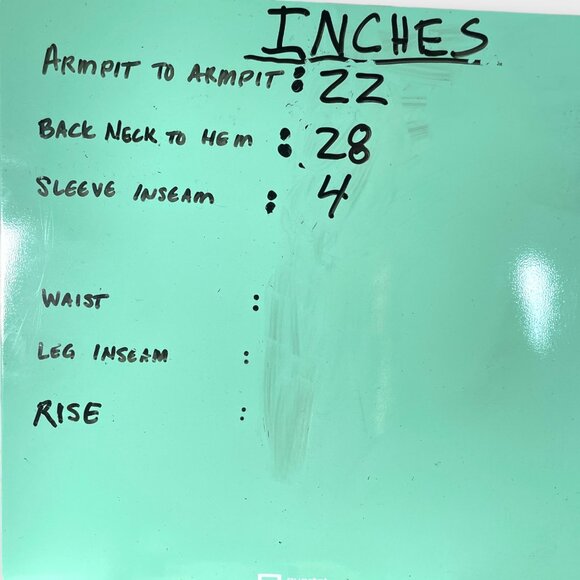 INCHES
ARMPIT TO ARMPIT : 22
BACK NECK TO HEM : 28
SLEEVE INSEAM : 4
WAIST :
LEG INSEAM :
RISE :